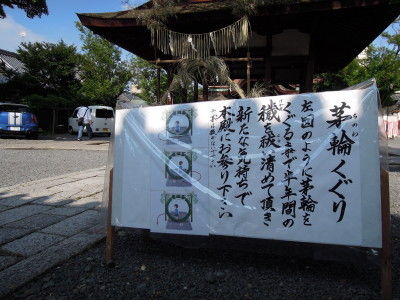 茅輪くぐり
ちのわ
左図のように茅輪を
くぐる事で半年間の
穢を祓い清めて頂き
新たな気持ちで
本殿へお参り下さい